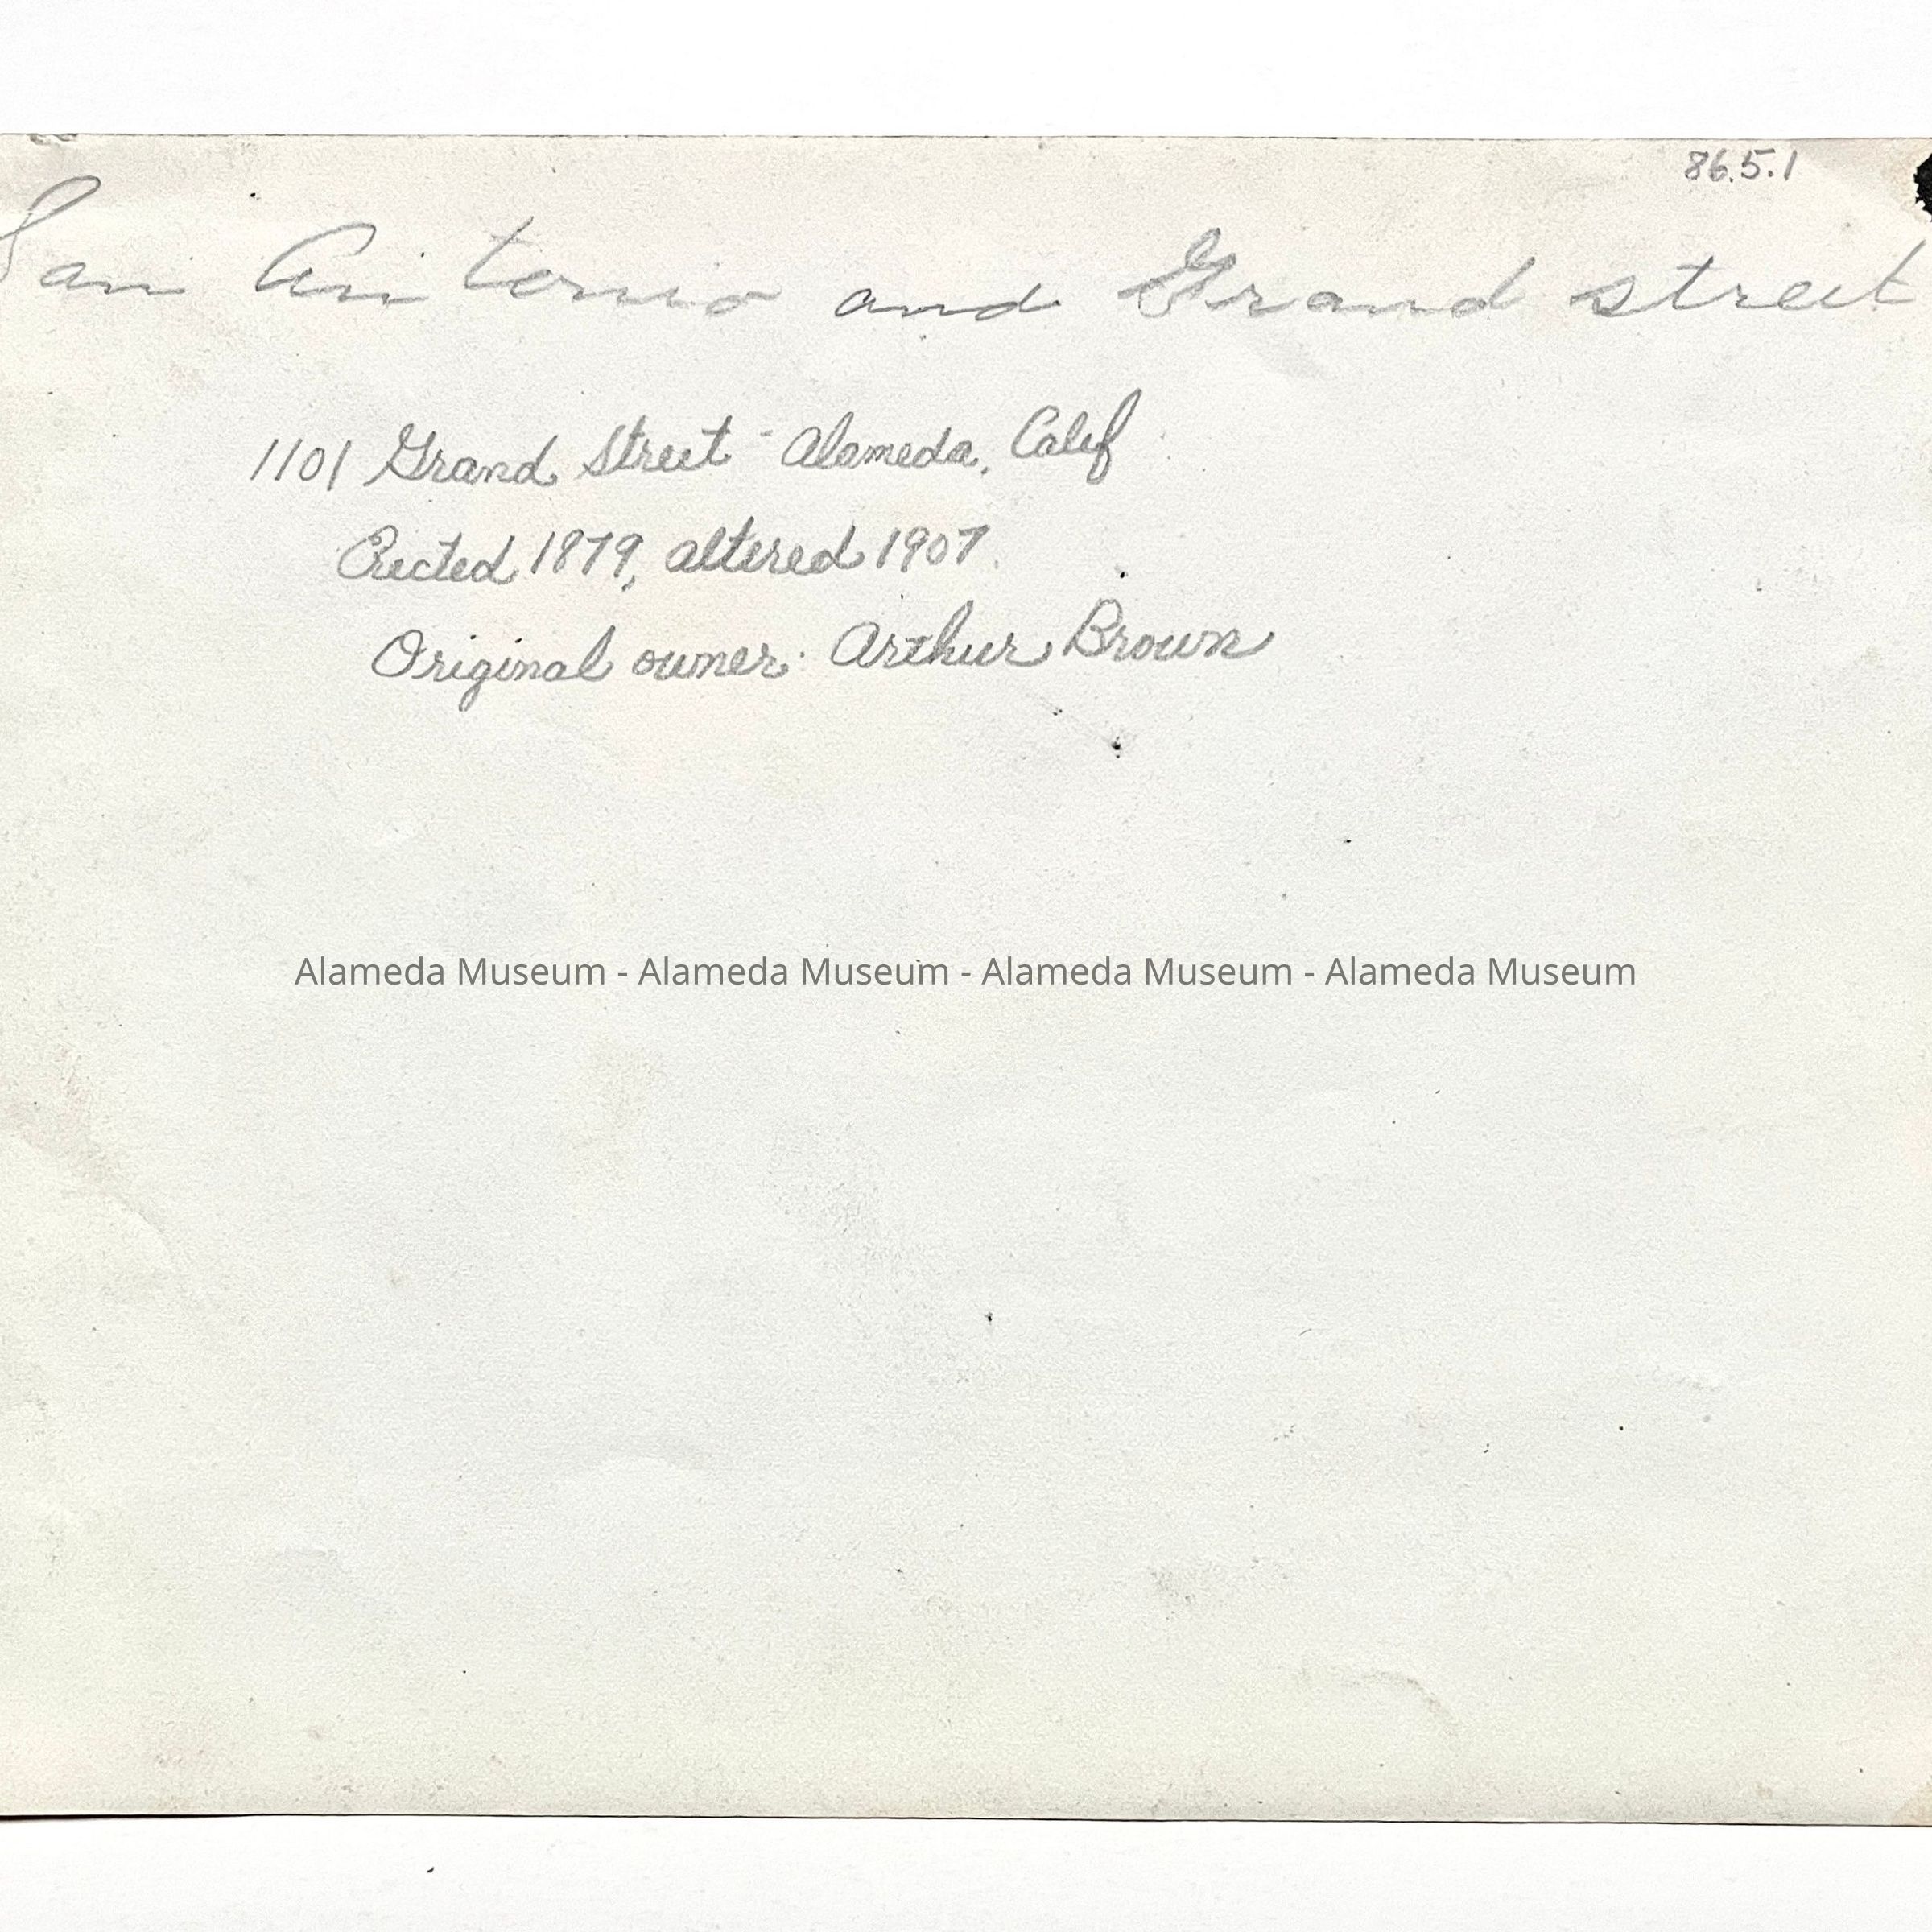 86.5.1
San Antonio and Grand street
1101 Grand Street - Alameda, Calif
Erected 1879, altered 1907.
Original owner: Arthur Brown
Alameda Museum - Alameda Museum - Alameda Museum - Alameda Museum